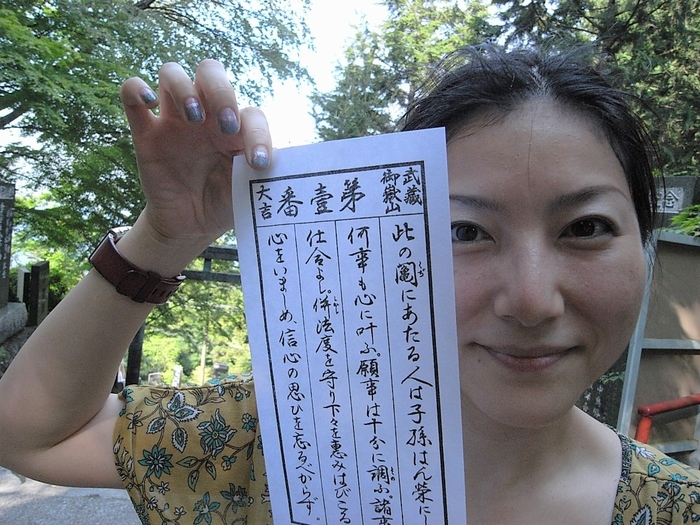 武藏
御嶽山
第壹番
大吉
此の鬮にあたる人は子孫はん榮に
何事も心に叶ふ。願事は十分に調ふ。諸事
仕合よし。併法度を守り下々を惠みはびこる
心をいましめ、信心の思ひを忘るべからず。